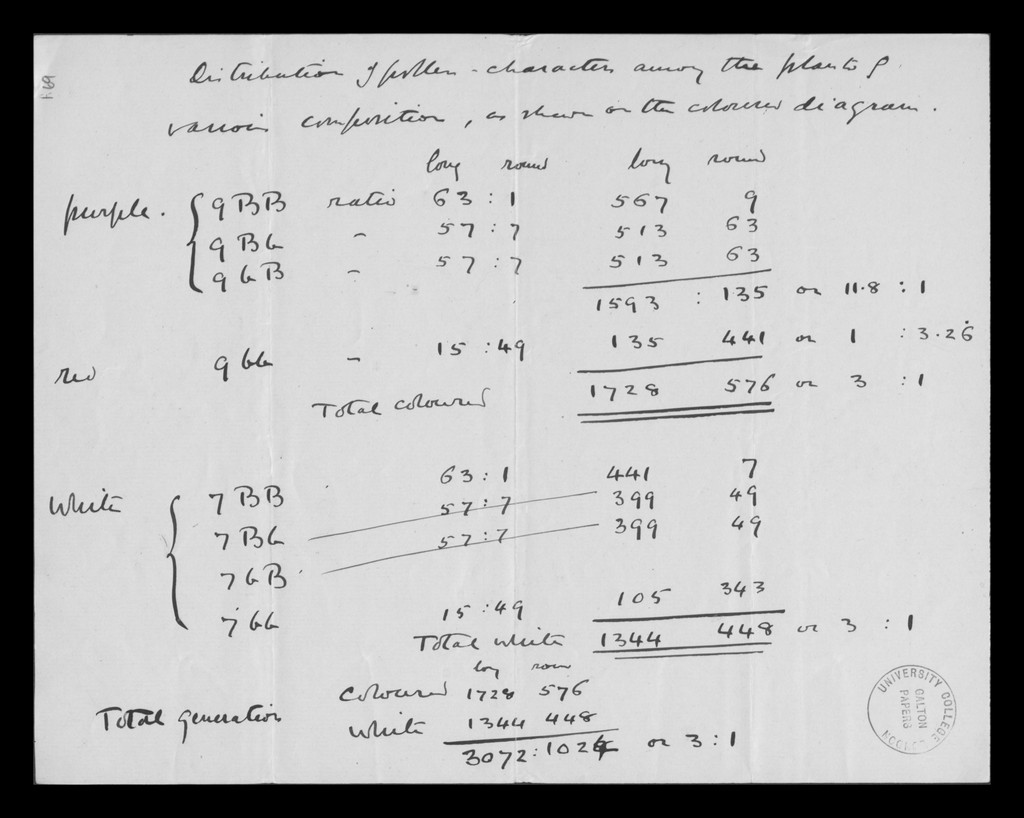 Distribution of pollen-characters among the plants of
various composition, as shewn on the coloured diagram.
long round long round
purple. 9 BB ratio 63 : 1 567 9
9 Bb " 57 : 7 513 63
9 bB " 57 : 7 513 63
1593 : 135 or 11.8 : 1
red 9 bb " 15 : 49 135 441 or 1 : 3.26
Total coloured 1728 576 or 3 : 1
White 7 BB 63 : 1 441 7
7 Bb 57 : 7 399 49
7 bB 57 : 7 399 49
7 bb 15 : 49 105 343
Total white 1344 448 or 3 : 1
long roun
Total generation Coloured 1728 576
White 1344 448
3072 : 1024 or 3 : 1
UNIVERSITY COLLEGE LONDON
GALTON PAPERS